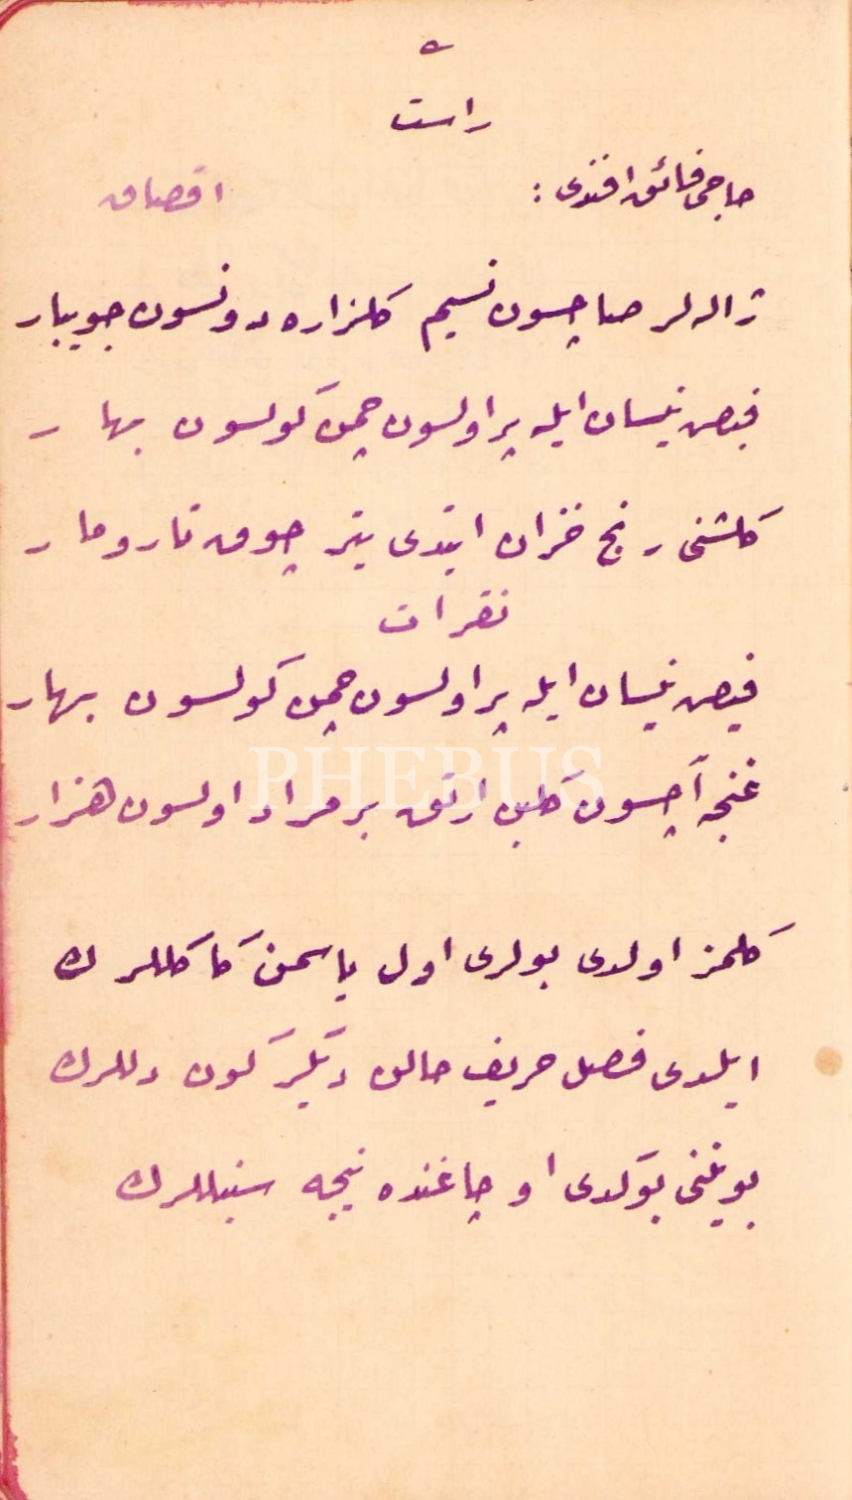 ٥
راست
حاجی فائق افندی :
اقصاق
ژاله لر صاچسون نسیم كلزاره دونسون جویبار
فیض نیسان ایله پر اولسون چمن كولسون بهار
كلشنی رنج خزان ایتدی یتر چوق تارومار
نقرات
فیض نیسان ایله پر اولسون چمن كولسون بهار
غنچه آچسون آرتق بر مراد اولسون هزار
PHEBUS
كلمز اولدی بولری اول یاسمن كاكللرك
ایلدی فصل خریف حالن دیكر كون دللرك
بوینی بوكدی او چاغنده نیجه سنبللرك